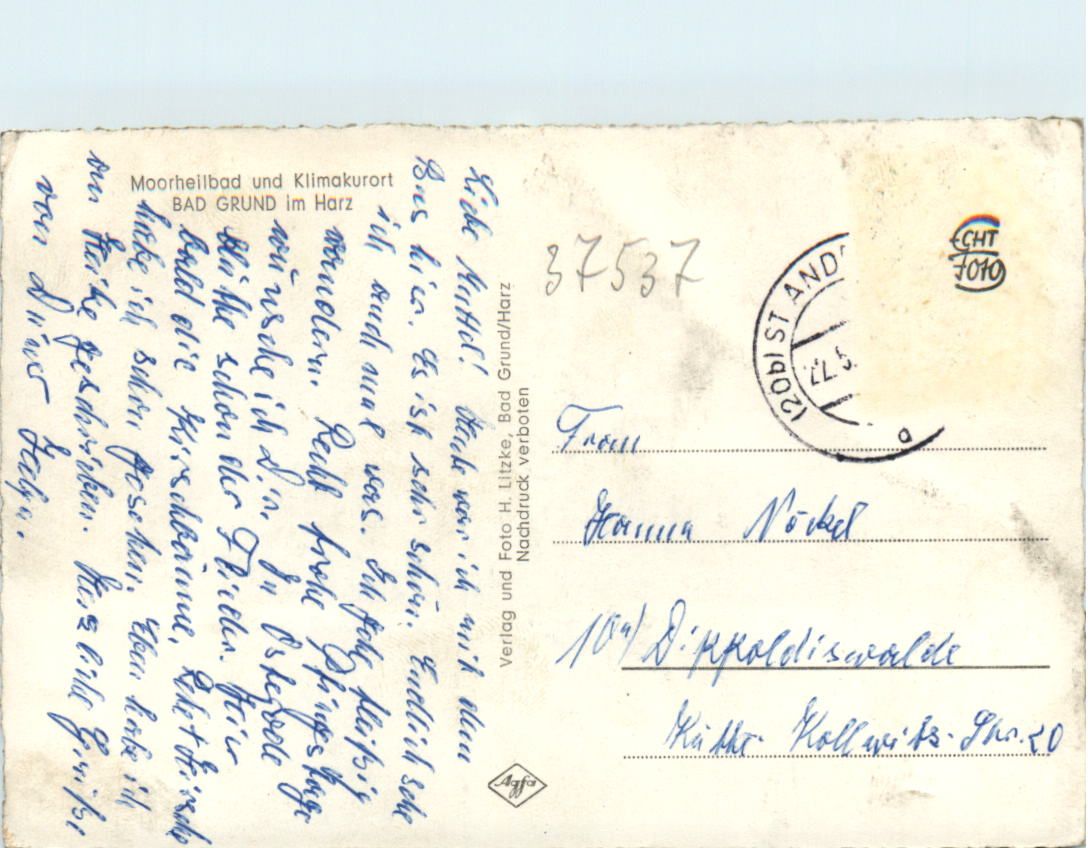 Moorheilbad und Klimakurort
BAD GRUND im Harz
Liebe Mutter! Heute war ich mit dem
Bus hier. Es ist sehr schön. Endlich sehe
ich auch mal was. Ich gehe fleißig
wandern. Recht frohe Pfingsttage
wünsche ich Dir. In Osterode
blühte schon der Flieder. Hier
bald die Kirschbäume,
habe ich schon gesehen. Eben habe ich
an Heike geschrieben. Herzliche Grüße
von Deiner
Verlag und Foto H. Litzke, Bad Grund/Harz
Nachdruck verboten
Agfa
37537
(20b) ST ANDR
22.5.
a
ECHT
FOTO
Frau
Hanna Nöckel
10a) Dippoldiswalde
Käthe-Kollwitz-Str. 20